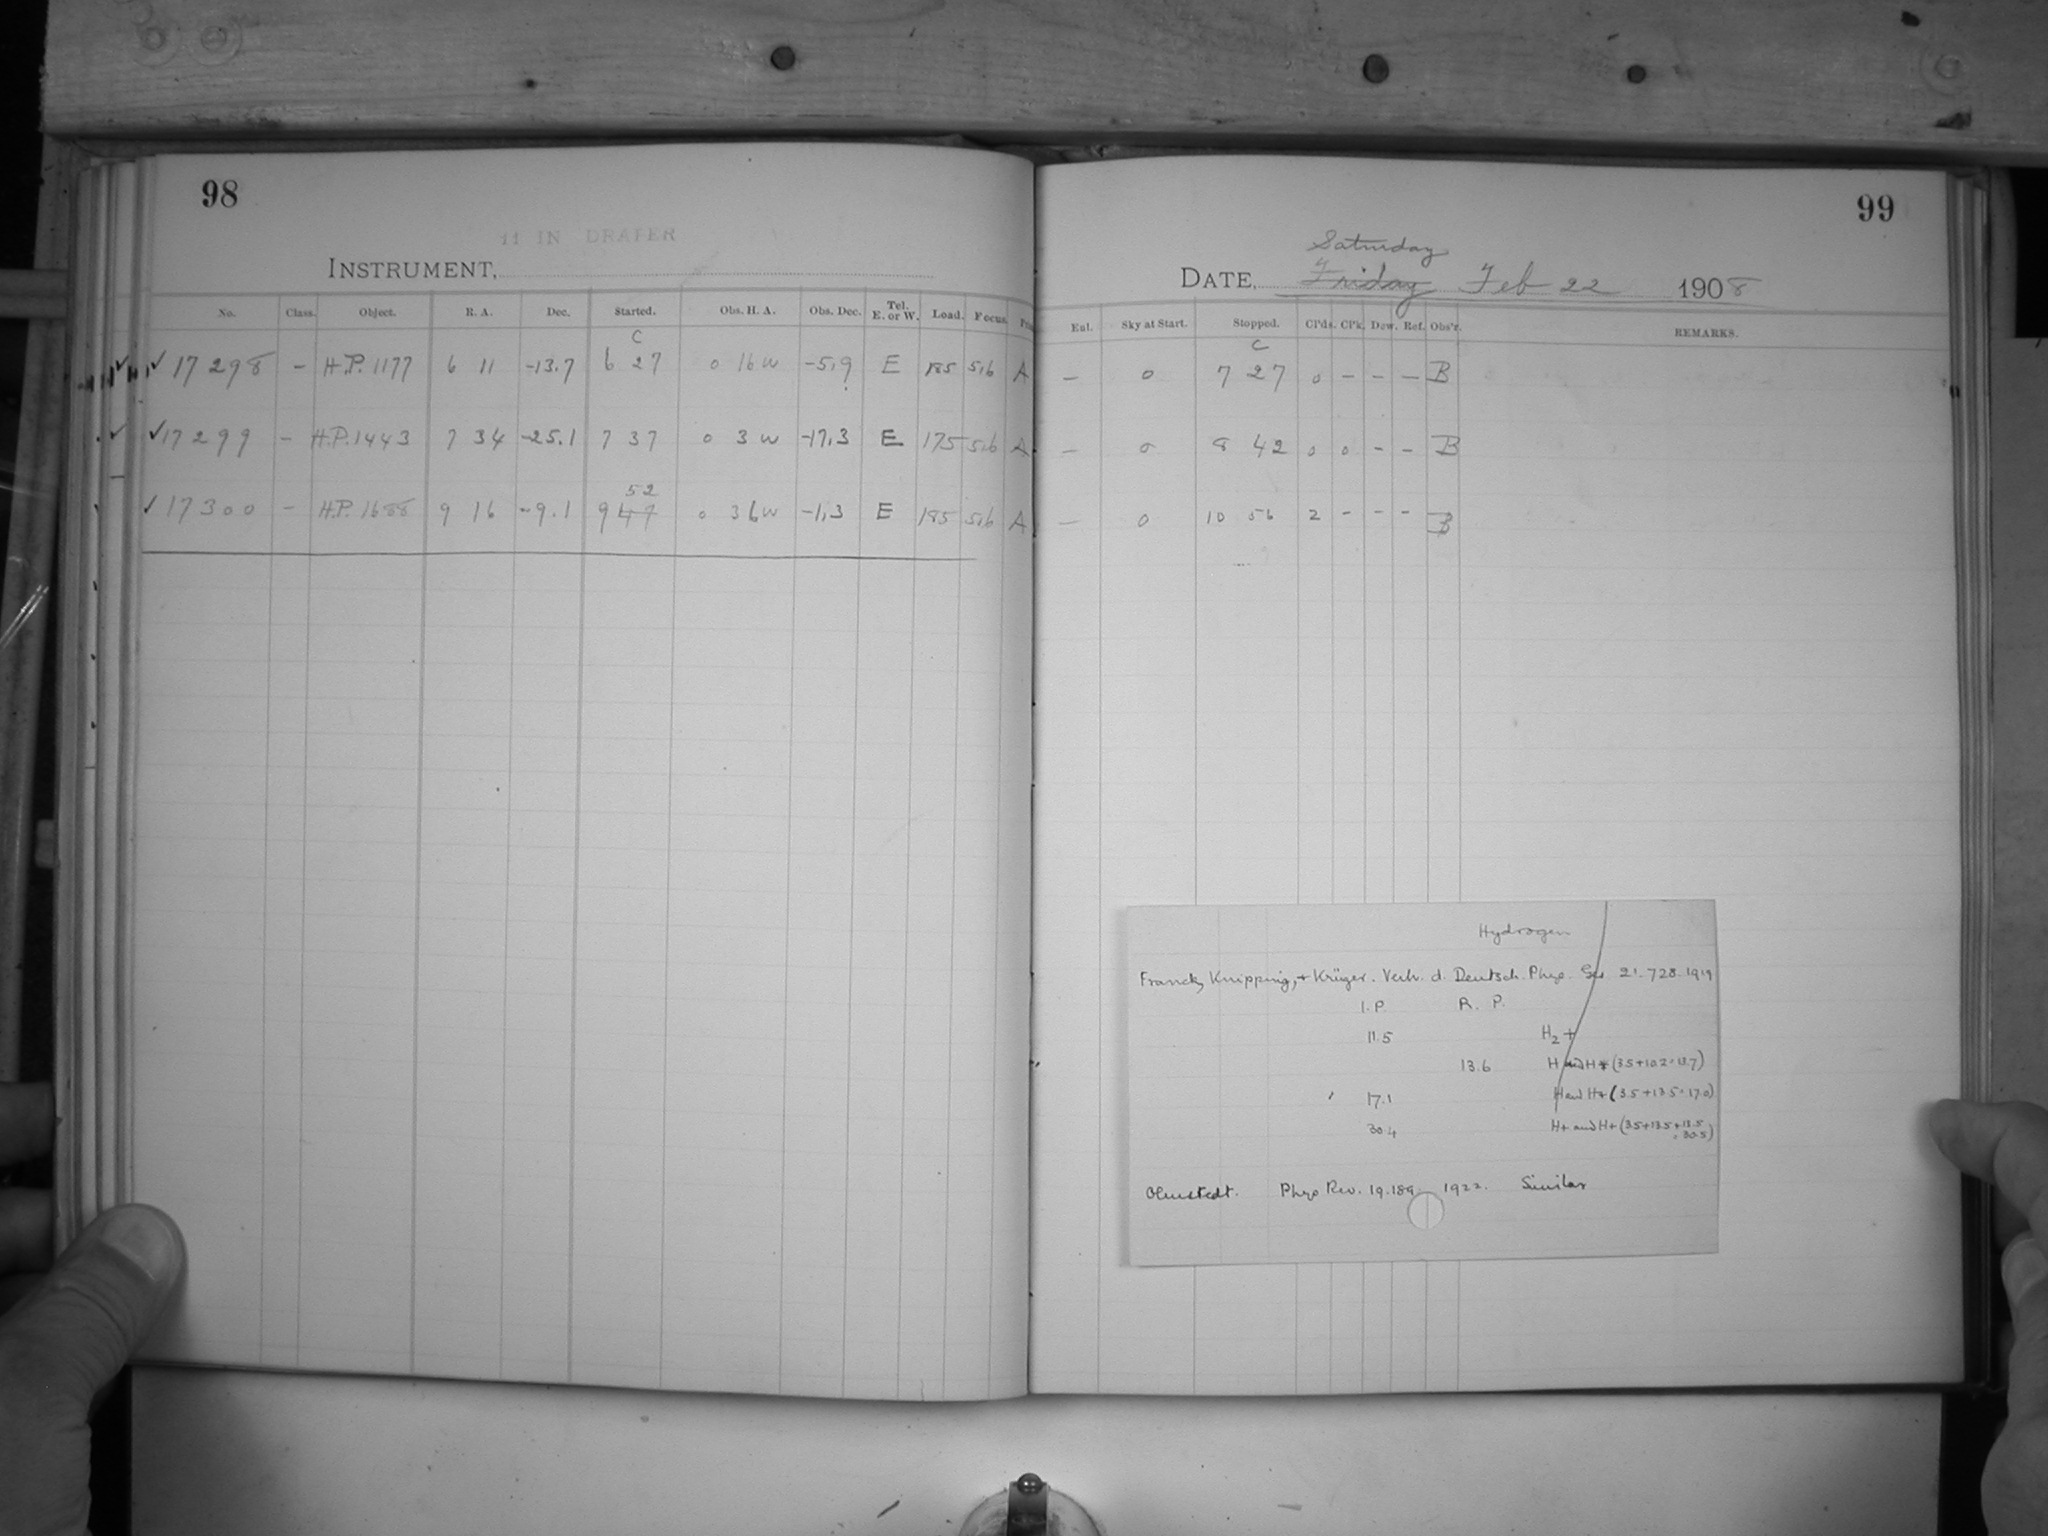 98
11 IN DRAPER
INSTRUMENT,
No. Class. Object. R. A. Dec. Started. Obs. H. A. Obs. Dec. Tel. E. or W. Load. Focus.
C
✓ ✓ 17298 – H.P. 1177 6 11 -13.7 6 27 0 16 W -5.9 E 185 5.6 A
✓ ✓ 17299 – H.P. 1443 7 34 -25.1 7 37 0 3 W -17.3 E 175 5.6 A
52
✓ 17300 – H.P. 1688 9 16 -9.1 9 47 0 36 W -1.3 E 185 5.6 A
99
Saturday
DATE, Friday Feb 22 1908
Eul. Sky at Start. Stopped. Cl'ds. Cl'k. Dew. Ref. Obs'r. REMARKS.
C
– 0 7 27 0 – – – B
– 0 8 42 0 0 – – B
– 0 10 56 2 – – – B
Hydrogen
Franck, Knipping, + Krüger. Verh. d. Deutsch. Phys. Ges 21. 728. 1919
I. P. R. P.
11.5 H2+
13.6 H and H* (3.5+10.2=13.7)
17.1 H and H+ (3.5+13.5=17.0)
30.4 H+ and H+ (3.5+13.5+13.5
=30.5)
Olmstedt. Phys Rev. 19. 189. 1922. Similar